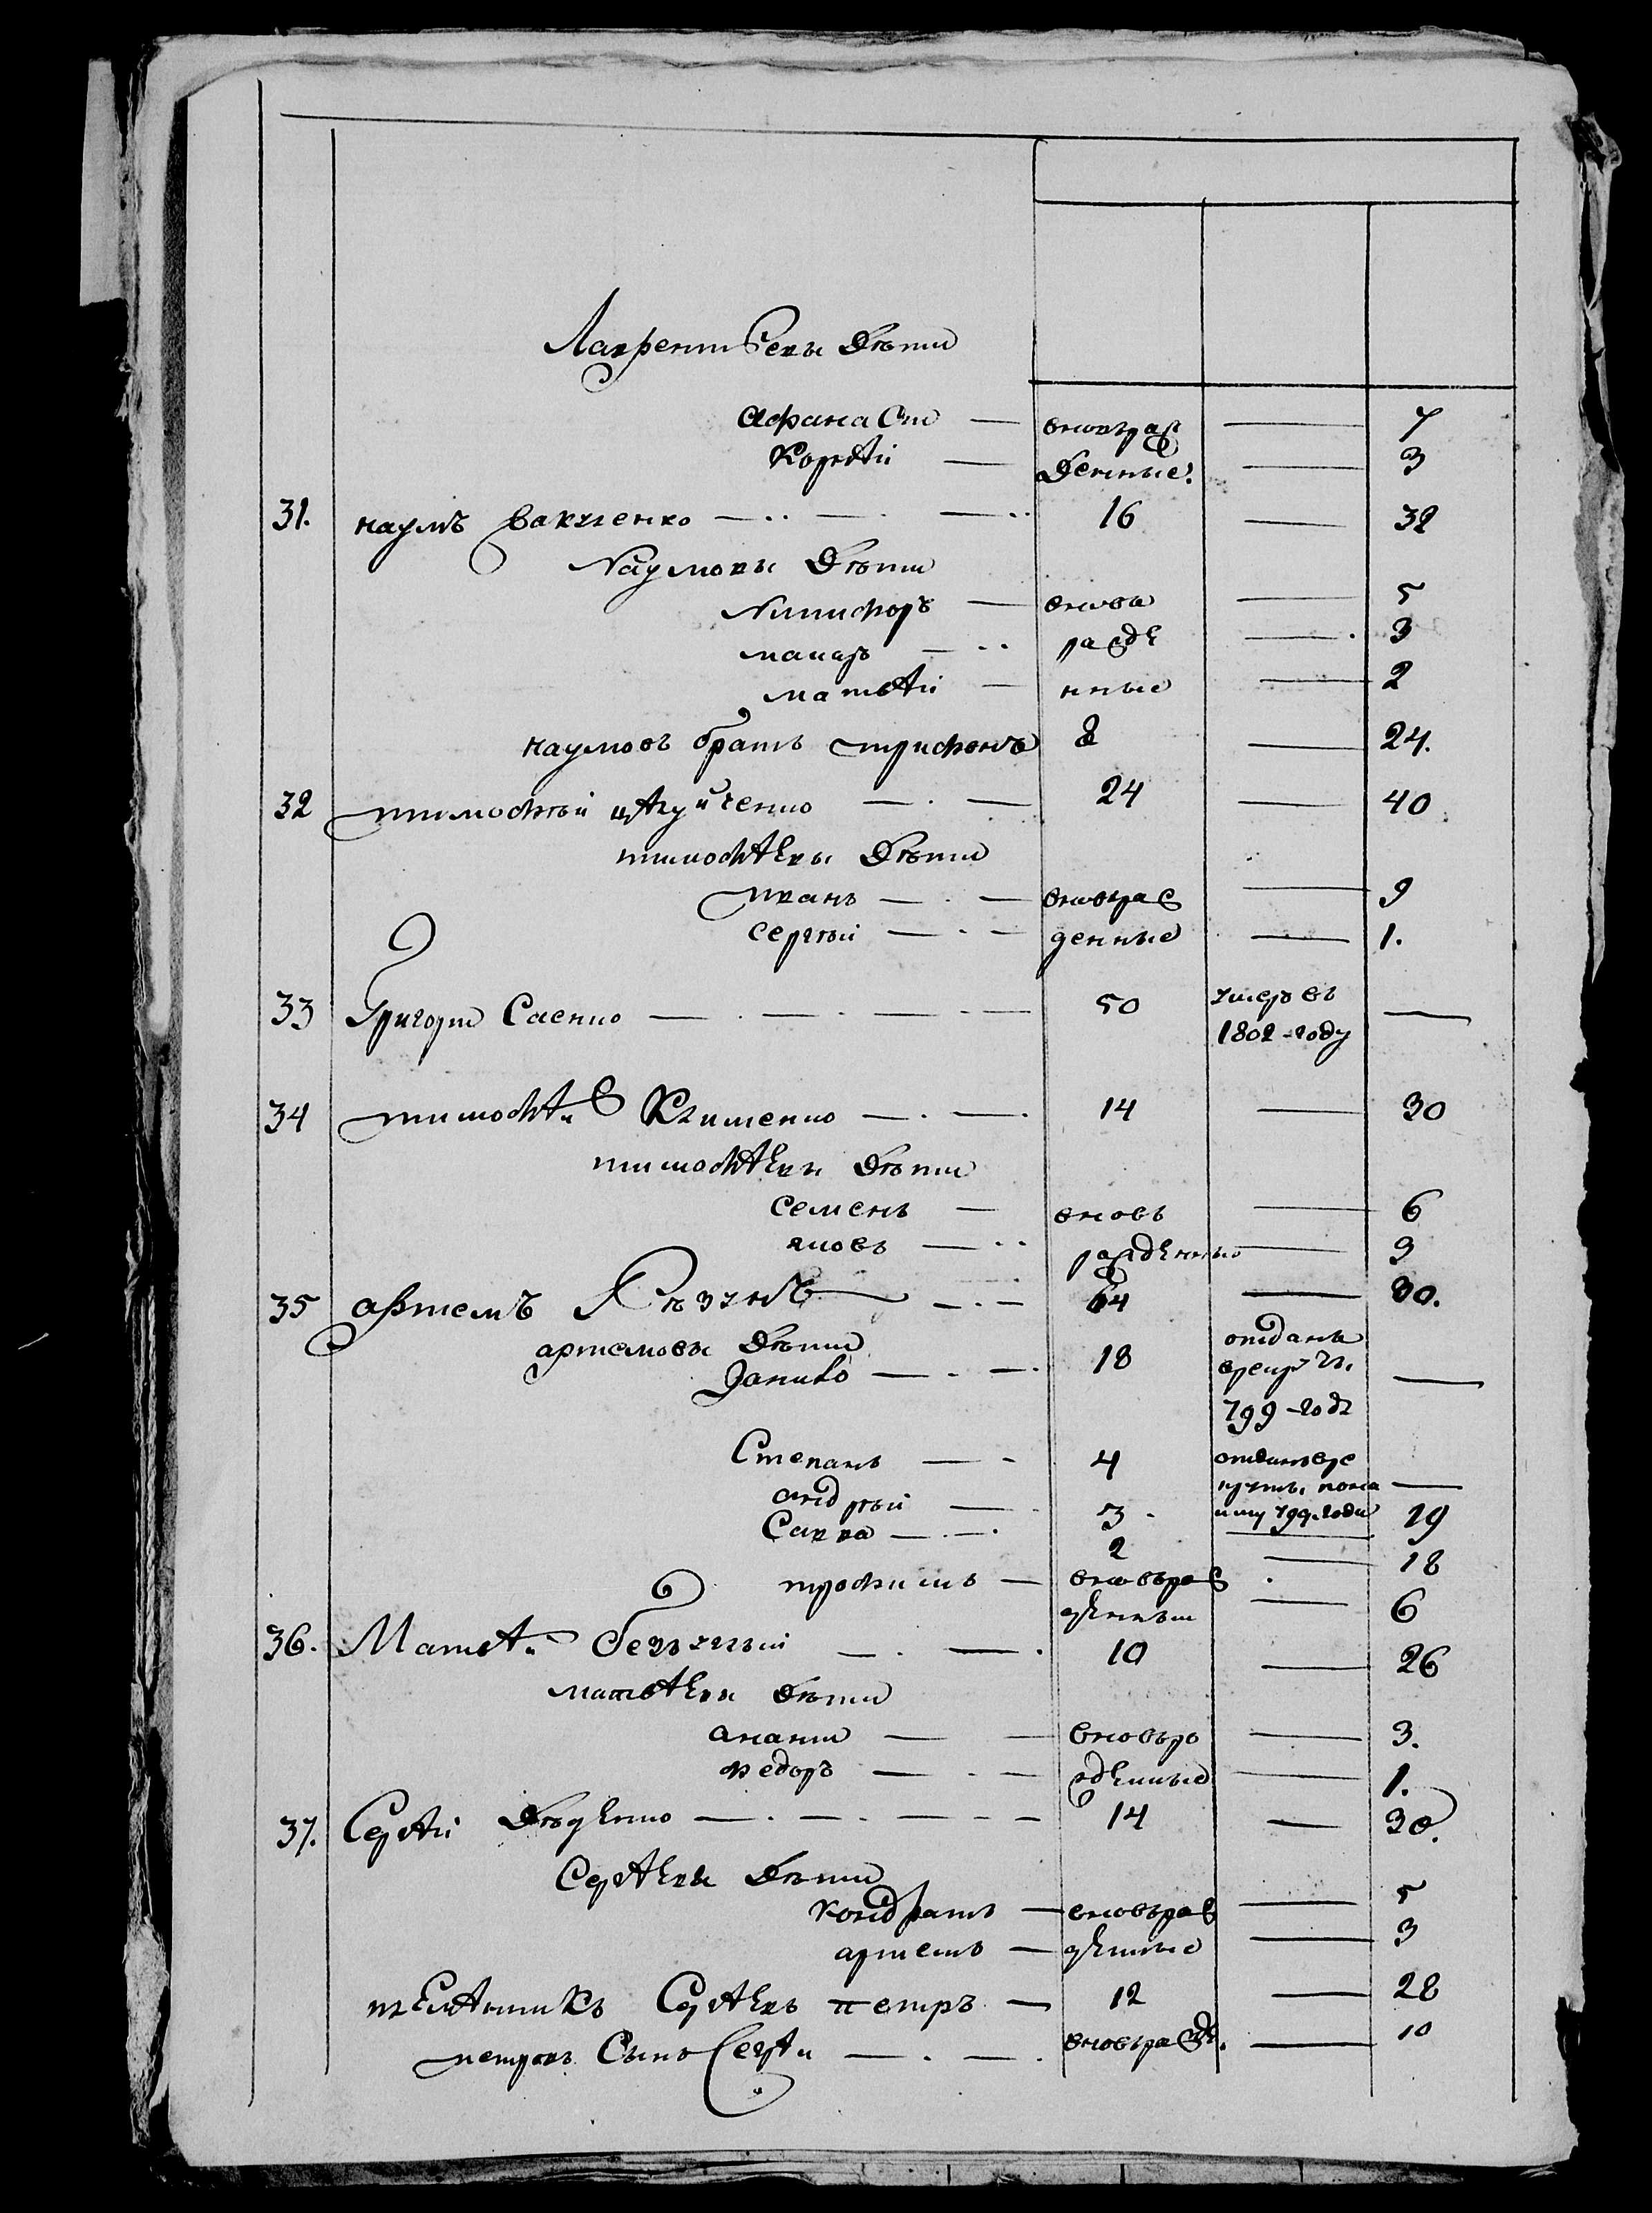 Лаврентьевы дѣти
Афанаси — вноврож 7
Корнѣй — денные. 3
31. наумъ Вакуленко — 16 — 32
Наумовы дѣти
Никифоръ — вновь — 5
макаръ — рожде — 3
матвѣй — нные — 2
наумовъ братъ трифонъ 8 — 24.
32 тимофѣй — 24 — 40
тимофѣевы дѣти
иванъ — вноврож — 9
сергѣй — денные — 1.
33 Григори Саенко — 50 умеръ въ —
1802-году
34 тимофѣй Клименко — 14 — 30
тимофѣевы дѣти
семенъ — вновь — 6
яковъ — рожденные — 3
35 артемъ — 64 — 80.
артемовы дѣти
Данило — 18 отданъ
врекруты —
799-годѣ
Степанъ — 4 отданъ вре
круты —
андрѣй — 3 799. году 19
Савва — 2 — 18
трофимъ — вновьрож
денный — 6
36. Матвѣй — 10 — 26
матвѣевы дѣти
анани — вновьро — 3.
федоръ — жденные — 1.
37. Сергѣй Дѣденко — 14 — 30.
Сергѣевы дѣти
Кондратъ — вновьрож — 5
артемъ — денные — 3
племянникъ Сергѣевъ петръ — 12 — 28
петровъ Сынъ Сергѣй — вновьрожде. — 10